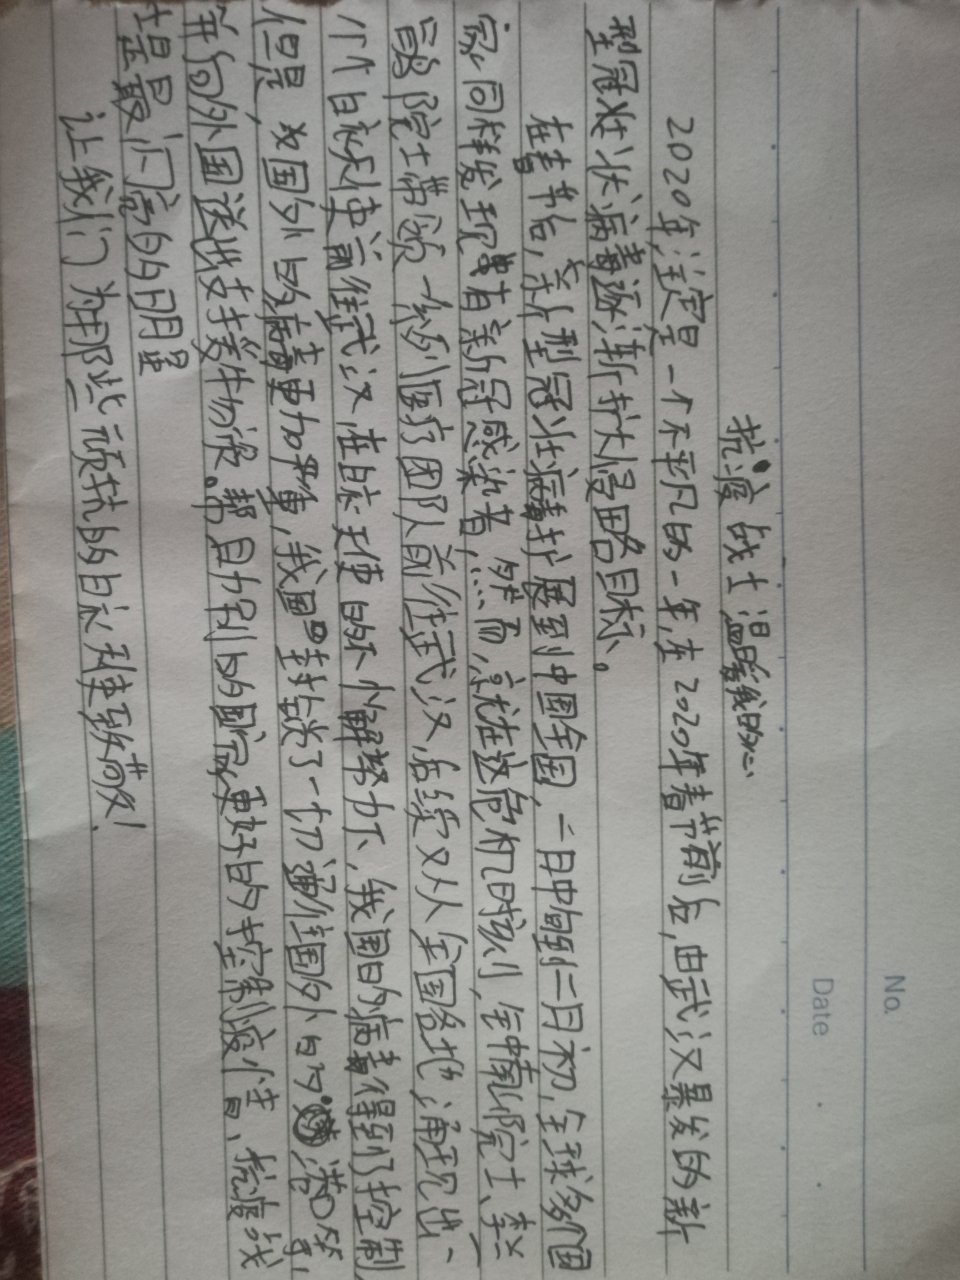 No.
Date
抗疫战士温暖我的心
2020年注定是一个不平凡的一年,在2020年春节前后,由武汉暴发的新
型冠状状病毒逐渐扩大侵略目标。
在春节后,新型冠状病毒扩展到中国全国,二月中旬到三月初,全球多个国
家同样发现有新冠感染者,然而,就在这危机时刻,钟南山院士、李兰
娟院士带领一级医疗团队前往武汉,后续又从全国各地涌现出一
个个白衣天使前往武汉在白衣天使的不懈努力下,我国的病毒得到了控制,
但是,如国外的病毒更加严重,我国封锁了一切通往国外的港口等,
并向外国送世支援物资。帮助别的国家更好的控制疫情、抗疫战
士是最闪亮的明星
让我们为那些顽抗的白衣天使致敬!